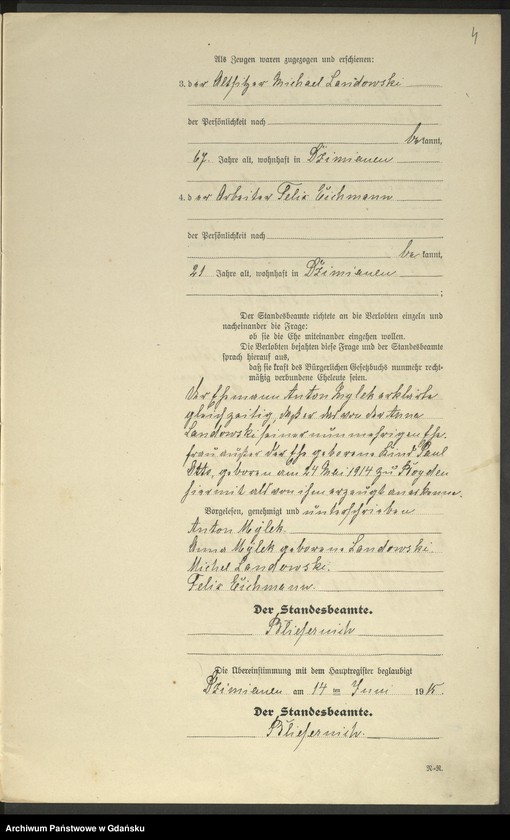 4
Als Zeugen waren zugezogen und erschienen:
3. der Altsitzer Michael Landowski
der Persönlichkeit nach
bekannt,
67 Jahre alt, wohnhaft in Dzimianen
4. der Arbeiter Felix Eichmann
der Persönlichkeit nach
bekannt,
21 Jahre alt, wohnhaft in Dzimianen
;
Der Standesbeamte richtete an die Verlobten einzeln und
nacheinander die Frage:
ob sie die Ehe miteinander eingehen wollen.
Die Verlobten bejahten diese Frage und der Standesbeamte
sprach hierauf aus,
daß sie kraft des Bürgerlichen Gesetzbuchs nunmehr recht-
mäßig verbundene Eheleute seien.
Der Ehemann Anton Mylek erklärte
gleichzeitig, daß er das von der Anna
Landowski seiner nunmehrigen Ehe-
frau außer der Ehe geborene Kind Paul
Otto, geboren am 24 Mai 1914 zu
hiermit als von ihm erzeugt anerkenne.
Vorgelesen, genehmigt und unterschrieben
Anton Mÿlek.
Anna Mÿlek geborene Landowski.
Michel Landowski.
Felix Eichmann.
Der Standesbeamte.
Bliefernich
Die Übereinstimmung mit dem Hauptregister beglaubigt
Dzimianen am 14 ten Juni 1915.
Der Standesbeamte.
Bliefernich.
R.-R.
Archiwum Państwowe w Gdańsku